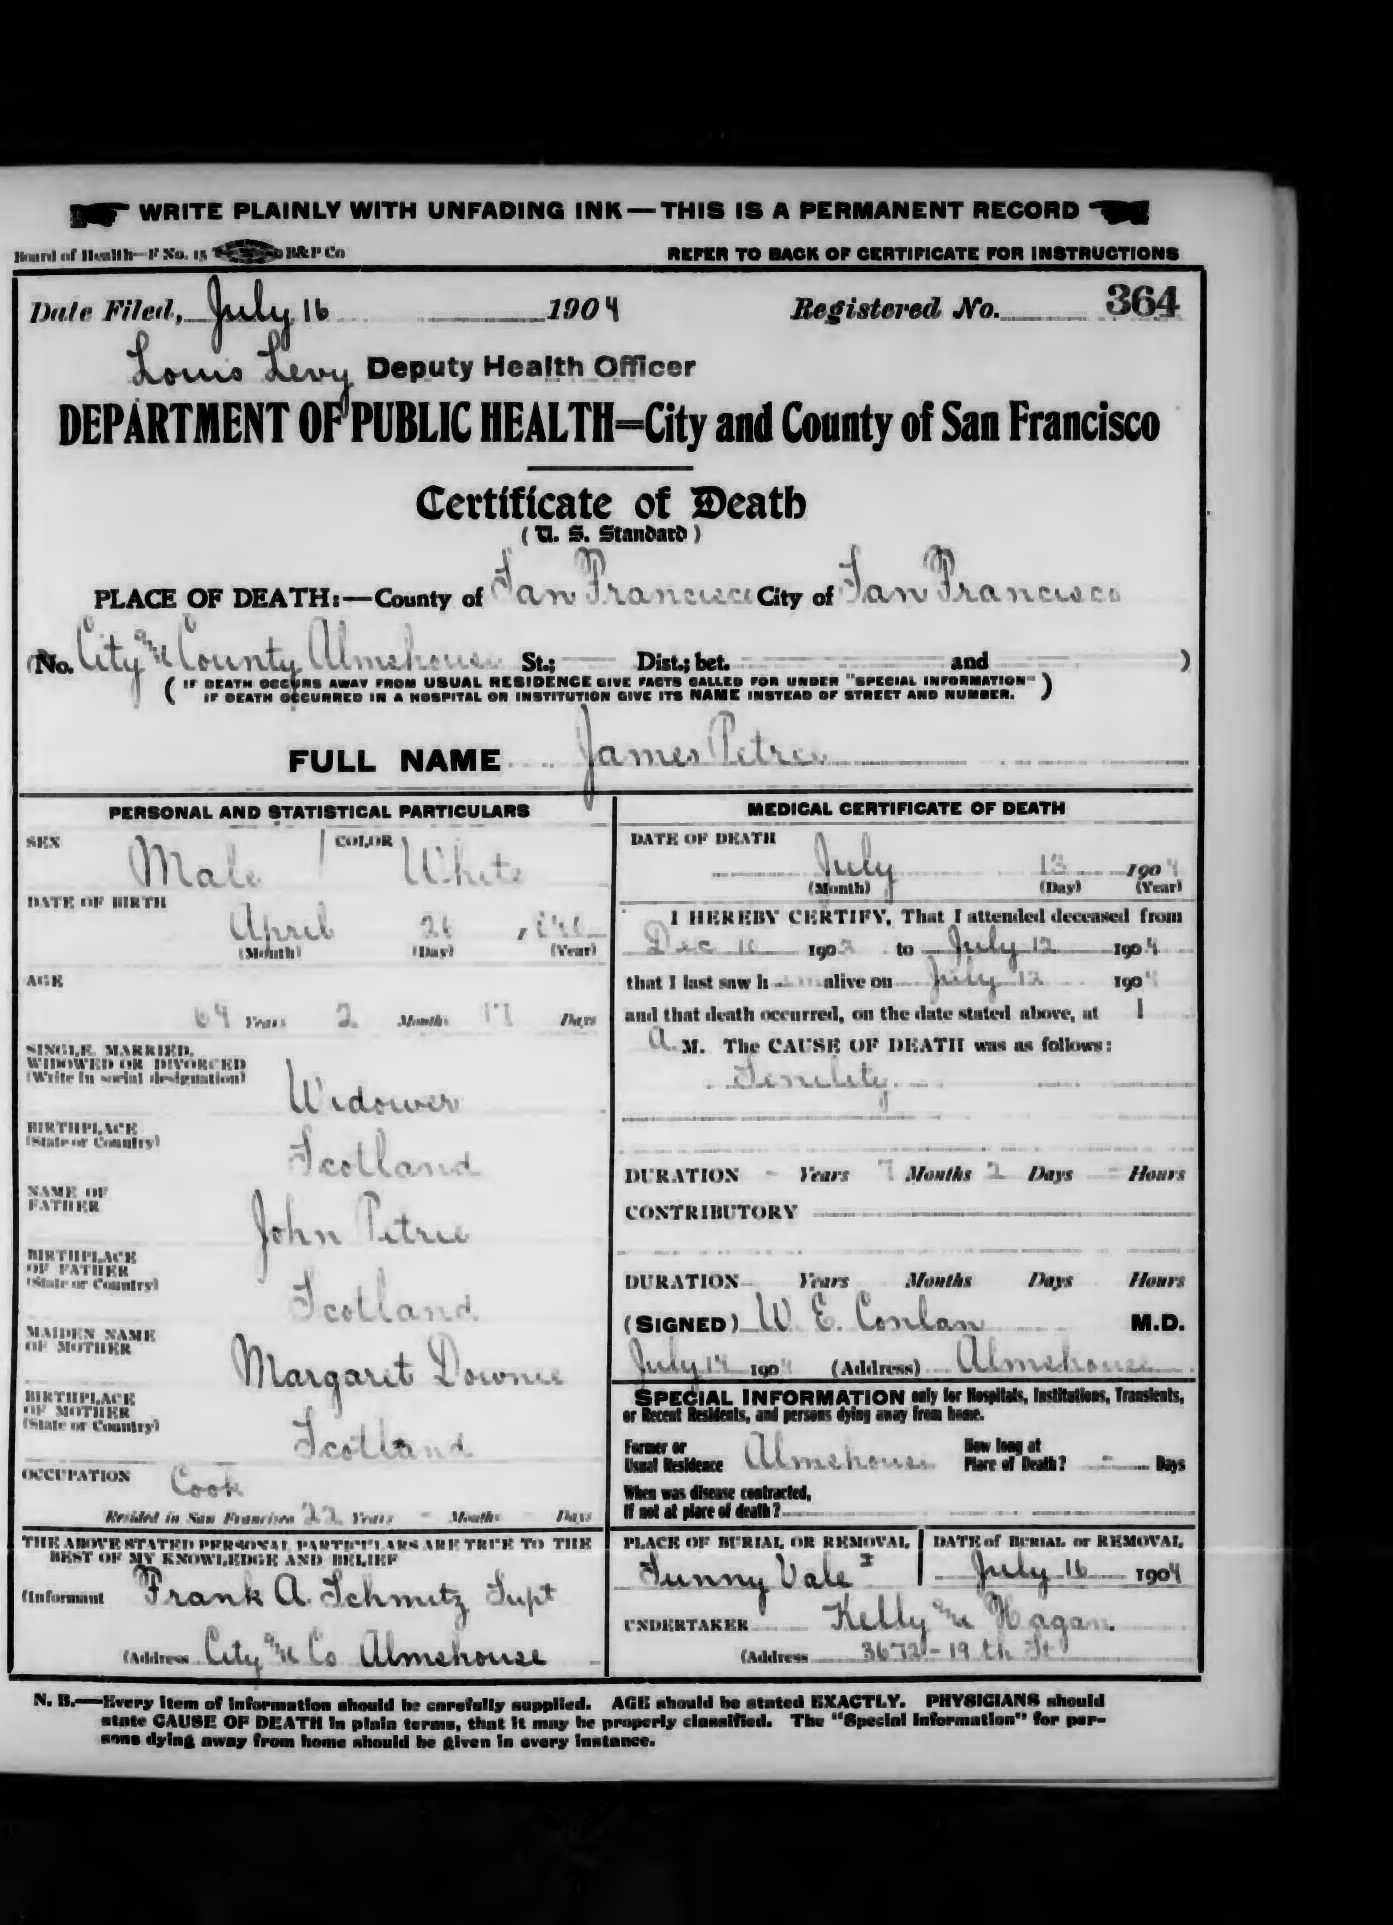 WRITE PLAINLY WITH UNFADING INK—THIS IS A PERMANENT RECORD
Board of Health—F No. 15 B&P Co REFER TO BACK OF CERTIFICATE FOR INSTRUCTIONS
Date Filed, July 16 1904 Registered No. 364
Louis Levy Deputy Health Officer
DEPARTMENT OF PUBLIC HEALTH=City and County of San Francisco
Certificate of Death
(U. S. Standard)
PLACE OF DEATH:—County of San Francisco City of San Francisco
(No. City and County Almshouse St.; Dist.; bet. and )
(IF DEATH OCCURS AWAY FROM USUAL RESIDENCE GIVE FACTS CALLED FOR UNDER "SPECIAL INFORMATION"
IF DEATH OCCURRED IN A HOSPITAL OR INSTITUTION GIVE ITS NAME INSTEAD OF STREET AND NUMBER.)
FULL NAME James Petrie
PERSONAL AND STATISTICAL PARTICULARS
SEX Male COLOR White
DATE OF BIRTH
April 26
(Month) (Day) (Year)
AGE
64 Years 2 Months 17 Days
SINGLE, MARRIED,
WIDOWED OR DIVORCED
(Write in social designation)
Widower
BIRTHPLACE
(State or Country)
Scotland
NAME OF
FATHER
John Petrie
BIRTHPLACE
OF FATHER
(State or Country)
Scotland
MAIDEN NAME
OF MOTHER
Margaret Downie
BIRTHPLACE
OF MOTHER
(State or Country)
Scotland
OCCUPATION Cook
Resided in San Francisco 22 Years - Months - Days
THE ABOVE STATED PERSONAL PARTICULARS ARE TRUE TO THE
BEST OF MY KNOWLEDGE AND BELIEF
(Informant Frank A. Schmitz Supt
(Address City and Co Almshouse
MEDICAL CERTIFICATE OF DEATH
DATE OF DEATH
July 13 1904
(Month) (Day) (Year)
I HEREBY CERTIFY, That I attended deceased from
Dec 10 190 to July 12 1904
that I last saw h im alive on July 12 1904
and that death occurred, on the date stated above, at 1
A. M. The CAUSE OF DEATH was as follows:
Senility
DURATION - Years 7 Months 2 Days - Hours
CONTRIBUTORY
DURATION Years Months Days Hours
(SIGNED) W. E. Conlan M.D.
July 14 1904 (Address) Almshouse
SPECIAL INFORMATION only for Hospitals, Institutions, Transients,
or Recent Residents, and persons dying away from home.
Former or
Usual Residence Almshouse How long at
Place of Death? - Days
When was disease contracted,
If not at place of death?
PLACE OF BURIAL OR REMOVAL DATE of BURIAL or REMOVAL
Sunny Vale July 16 1904
UNDERTAKER Kelly and Hagan.
(Address 3672-19th St
N. B.—Every item of information should be carefully supplied. AGE should be stated EXACTLY. PHYSICIANS should
state CAUSE OF DEATH in plain terms, that it may be properly classified. The "Special Information" for per-
sons dying away from home should be given in every instance.